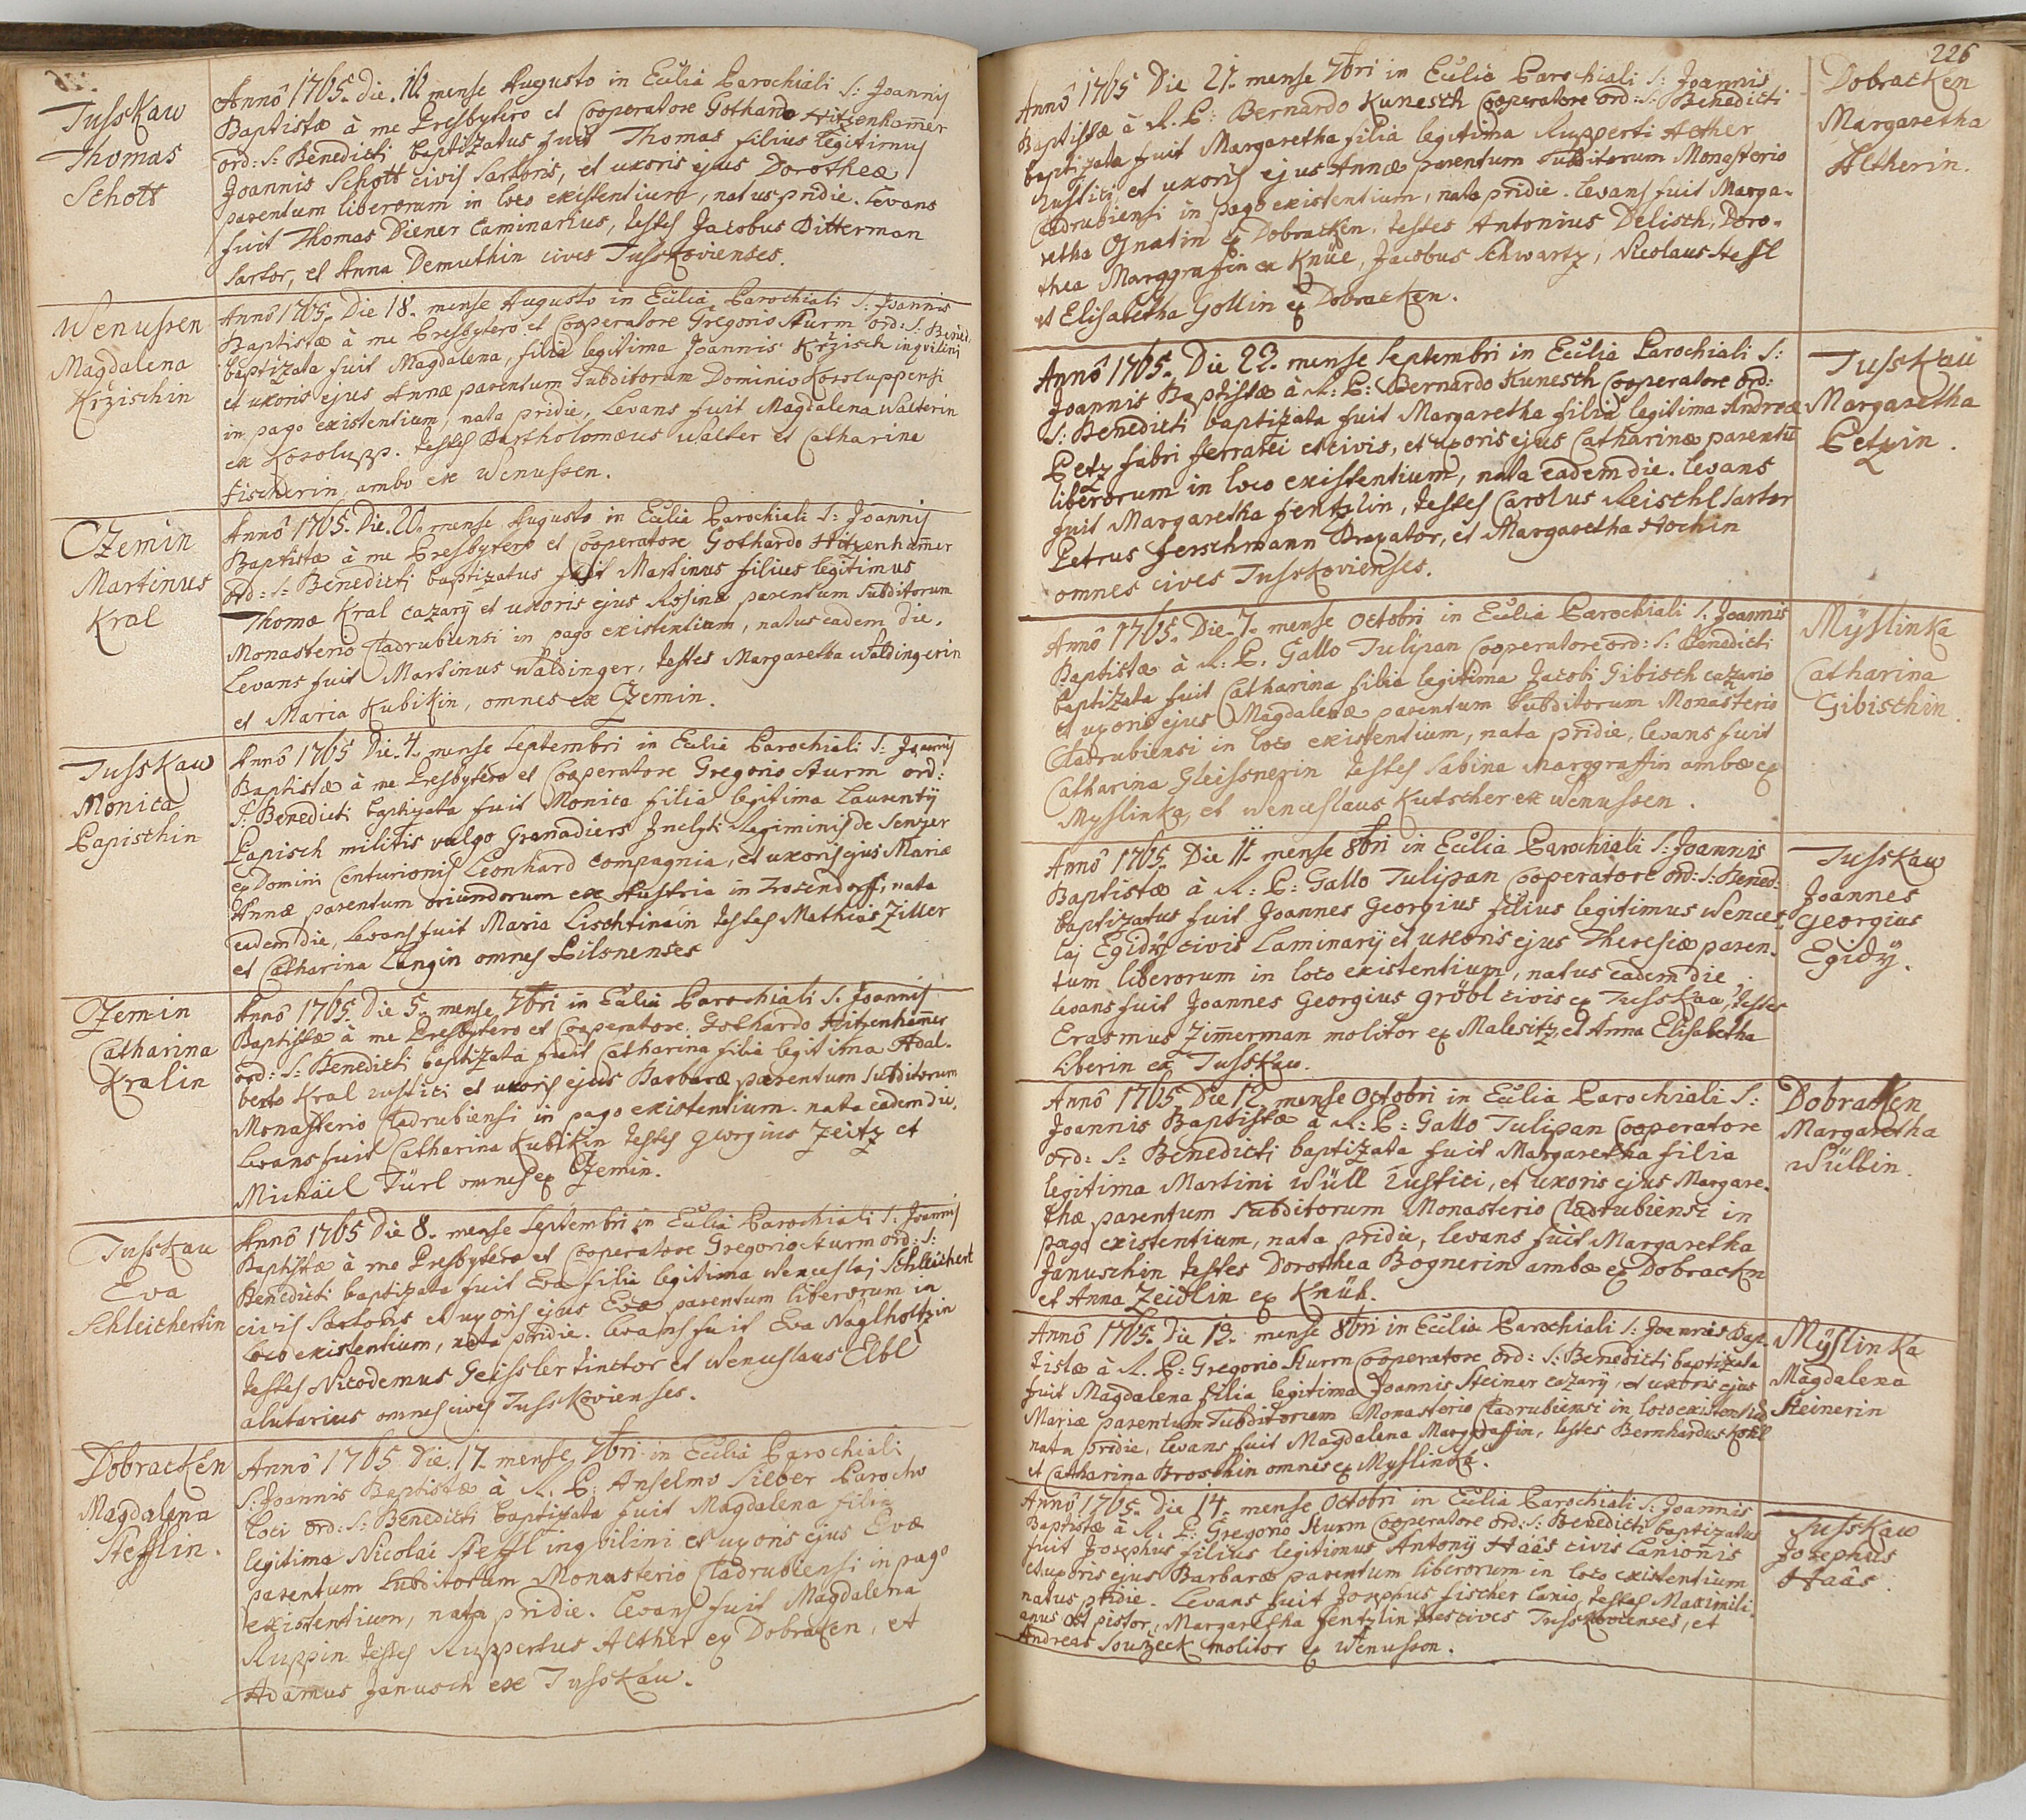 Tusskaw
Thomas
Schott
Annô 1765. Die. 16. mense Augusto in Ecclia Parochiali S: Joannis
Baptistæ à me Presbytero et Cooperatore Gothardo Hitzenham̄er
ord: S: Benedicti baptizatus fuit Thomas filius legitimus
Joannis Schott civis sartoris, et uxoris ejus Dorotheæ
parentum liberorum in loco existentium, natus pridie. Levans
fuit Thomas Diener Caminarius, testes Jacobus Ditterman
sartor, et Anna Demuthin cives Tusskovienses.
Wenussen
Magdalena
Kržischin
Annô 1765. Die 18. mense Augusto in Ecclia Parochiali S: Joannis
Baptistæ à me Presbytero et Cooperatore Gregorio Sturm ord: S: Bened:
baptizata fuit Magdalena, filia legitima Joannis Kržisch inqvilini
et uxoris ejus Annæ parentum subditorum Dominio Kosoluppensi
in pago existentium, nata pridie, Levans fuit Magdalena Walterin
ex Kosolupp. testes Bartholomæus Walter et Catharina
Fischerin, ambo ex Wenussen.
CZemin
Martinus
Kral
Annô 1765. Die. 20. mense Augusto in Ecclia Parochiali S: Joannis
Baptistæ à me Presbytero et Cooperatore Gothardo Hitzenham̄er
ord: S: Benedicti baptizatus fuit Martinus filius legitimus
Thomæ Kral cazarÿ et uxoris ejus Rosinæ parentum subditorum
Monasterio Cladrubiensi in pago existentium, natus eadem die.
Levans fuit Martinus Waldinger, testes Margaretha Waldingerin
et Maria Kubikin, omnes ex CZemin.
Tusskaw
Monica
Papischin
Annô 1765 Die. 4. mense Septembri in Ecclia Parochiali S: Joannis
Baptistæ à me Presbytero et Cooperatore Gregorio Sturm ord:
S: Benedicti baptizata fuit Monica filia legitima Laurentÿ
Papisch militis vulgo Granadiers Inclyti Regiminis de
ex Domini Centurionis Leonhard Compagnia, et uxoris ejus Mariæ
Annæ parentum oriundorum ex Austria in Trosendorff, nata
eadem die, Levans fuit Maria Lischtinain testes Mathias Ziller
et Catharina Langin omnes Pilsnenses
CZemin
Catharina
Kralin
Annô 1765. Die 5. mense 7bri in Ecclia Parochiali S: Joannis
Baptistæ à me Presbytero et Cooperatore Gothardo Hitzenham̄er
ord: S: Benedicti baptizata fuit Catharina filia legitima Adal-
berto Kral rustici et uxoris ejus Barbaræ parentum subditorum
Monasterio Cladrubiensi in pago existentium. nata eadem die.
Levans fuit Catharina Kubikin testes Georgius Zeitz et
Michaël Türl omnes ex CZemin.
Tusskau
Eva
Schleichertin
Annô 1765 Die 8. mense Septembri in Ecclia Parochiali S: Joannis
Baptistæ à me Presbytero et Cooperatore Gregorio Sturm ord: S:
Benedicti baptizata fuit Eva filia legitima Wenceslaj Schleichert
civis sartoris et uxoris ejus Evæ parentum liberorum in
loco existentium, nata pridie. Levans fuit Eva Naglholtzin
testes Nicodemus Geissler tinctor et Wenceslaus Elbl
alutarius omnes cives Tusskovienses.
Dobracken
Magdalena
Stefflin.
Annô 1765 Die. 17. mense 7bri in Ecclia Parochiali
S: Joannis Baptistæ à R. P: Anselmo Silber Parocho
loci ord: S: Benedicti baptizata fuit Magdalena filia
legitima Nicolai Steffl inqvilini et uxoris ejus Evæ
parentum subditorum Monasterio Cladrubiensi in pago
existentium, nata pridie. Levans fuit Magdalena
Ruppin testes Ruppertus Alther ex Dobracken, et
Adamus Janusch ex Tusskau.
226
Annô 1765 Die 21. mense 7bri in Ecclia Parochiali S: Joannis
Baptistæ à R. P: Bernardo Kunesch Cooperatore ord: S: Benedicti
baptizata fuit Margaretha filia legitima Rupperti Alther
Rustici, et uxoris ejus Annæ parentum subditorum Monasterio
Cladrubiensi in pago existentium, nata pridie. Levans fuit Marga-
retha Gnatin ex Dobracken. testes Antonius Delisch, Doro-
thea Marggrafin ex Knüe, Jacobus Schwartz, Nicolaus Steffl
et Elisabetha Gollin ex Dobracken.
Dobracken
Margaretha
Altherin.
Annô 1765. Die 22. mense Septembri in Ecclia Parochiali S:
Joannis Baptistæ à R: P: Bernardo Kunesch Cooperatore ord:
S: Benedicti baptizata fuit Margaretha filia legitima Andreæ
Petz fabri ferrarei et civis, et uxoris ejus Catharinæ parentū
liberorum in loco existentium, nata eadem die. Levans
fuit Margaretha Fentzlin, testes Carolus Reischl sartor
Petrus Ferschmann Braxator, et Margaretha Hochin
omnes cives Tusskovienses.
Tusskau
Margaretha
Petzin.
Annô 1765. Die. 7. mense Octobri in Ecclia Parochiali S. Joannis
Baptistæ à R: P. Gallo Tulipan Cooperatore ord: S: Benedicti
baptizata fuit Catharina filia legitima Jacobi Gibisch cazario
et uxoris ejus Magdalenæ parentum subditorum Monasterio
Cladrubiensi in loco existentium, nata pridie, Levans fuit
Catharina Gleissnerin testes Sabina Marggraffin ambæ ex
Myslinka, et Wenceslaus Kutscher ex Wenussen.
Mÿslinka
Catharina
Gibischin.
Annô 1765. Die 11. mense 8bri in Ecclia Parochiali S: Joannis
Baptistæ à R. P: Gallo Tulipan Cooperatore ord: S: Bened:
baptizatus fuit Joannes Georgius filius legitimus Wences-
laj Egidÿ civis Laminarÿ et uxoris ejus Theresiæ paren-
tum liberorum in loco existentium, natus eadem die.
Levans fuit Joannes Georgius Gröbl civis ex Tusskaw, testes
Erasmus Zim̄erman molitor ex Malesitz, et Anna Elisabetha
Liberin ex Tusskaw.
Tusskaw
Joannes
Georgius
Egidÿ.
Annô 1765 Die 12. mense Octobri in Ecclia Parochiali S:
Joannis Baptistæ à R: P: Gallo Tulipan Cooperatore
ord: S: Benedicti baptizata fuit Margaretha filia
legitima Martini Wüll rustici, et uxoris ejus Margare-
thæ parentum subditorum Monasterio Cladrubiensi in
pago existentium, nata pridie, Levans fuit Margaretha
Januschin testes Dorothea Bognerin ambæ ex Dobrackn
et Anna Zeidlin ex Knüh.
Dobracken
Margaretha
Wüllin.
Annô 1765. Die 13. mense 8bri in Ecclia Parochiali S: Joannis Bap-
tistæ à R. P: Gregorio Sturm Cooperatore ord: S: Benedicti baptizata
fuit Magdalena filia legitima Joannis Steiner cazarÿ, et uxoris ejus
Mariæ parentum subditorum Monasterio Cladrubiensi in loco existentiū
nata pridie, Levans fuit Magdalena Marggraffin, testes Bernhardus
et Catharina Broschin omnes ex Myslinka.
Mÿslinka
Magdalena
Steinerin
Annô 1765. Die 14. mense Octobri in Ecclia Parochiali S: Joannis
Baptistæ à R. P: Gregorio Sturm Cooperatore ord: S: Benedicti baptizatus
fuit Josephus filius legitimus Antonÿ Haâs civis Lanionis
et uxoris ejus Barbaræ parentum liberorum in loco existentium
natus pridie. Levans fuit Josephus Fischer Lanio, testes Maximili-
anus Ost pistor, Margaretha Fentzlin cives Tusskovienses, et
Andreas Soužeck molitor ex Wenusson.
Tusskaw
Josephus
Haâs.